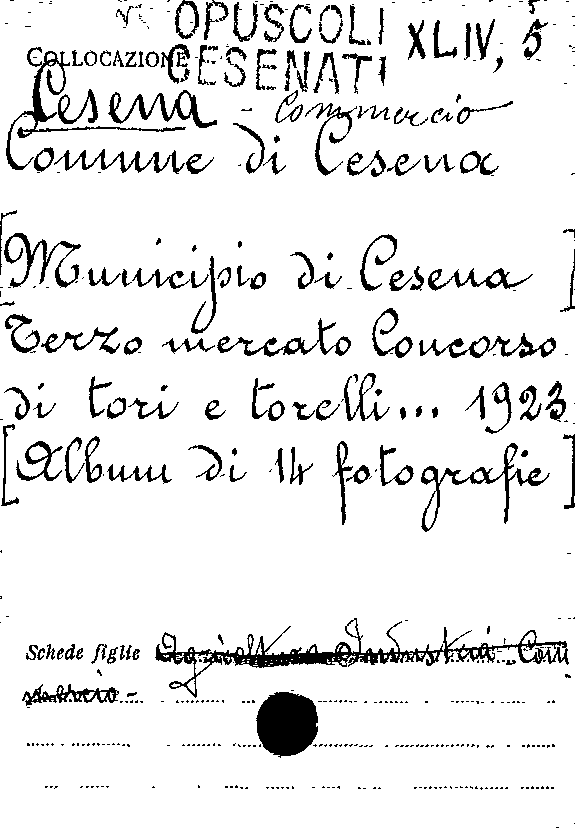 OPUSCOLI XLIV, 5
COLLOCAZIONE CESENATI
Cesena - Commercio
Comune di Cesena
[Municipio di Cesena]
Terzo mercato Concorso
di tori e torelli... 1923
[Album di 14 fotografie]
Schede figlie Agricoltura Industria: Com
mercio -